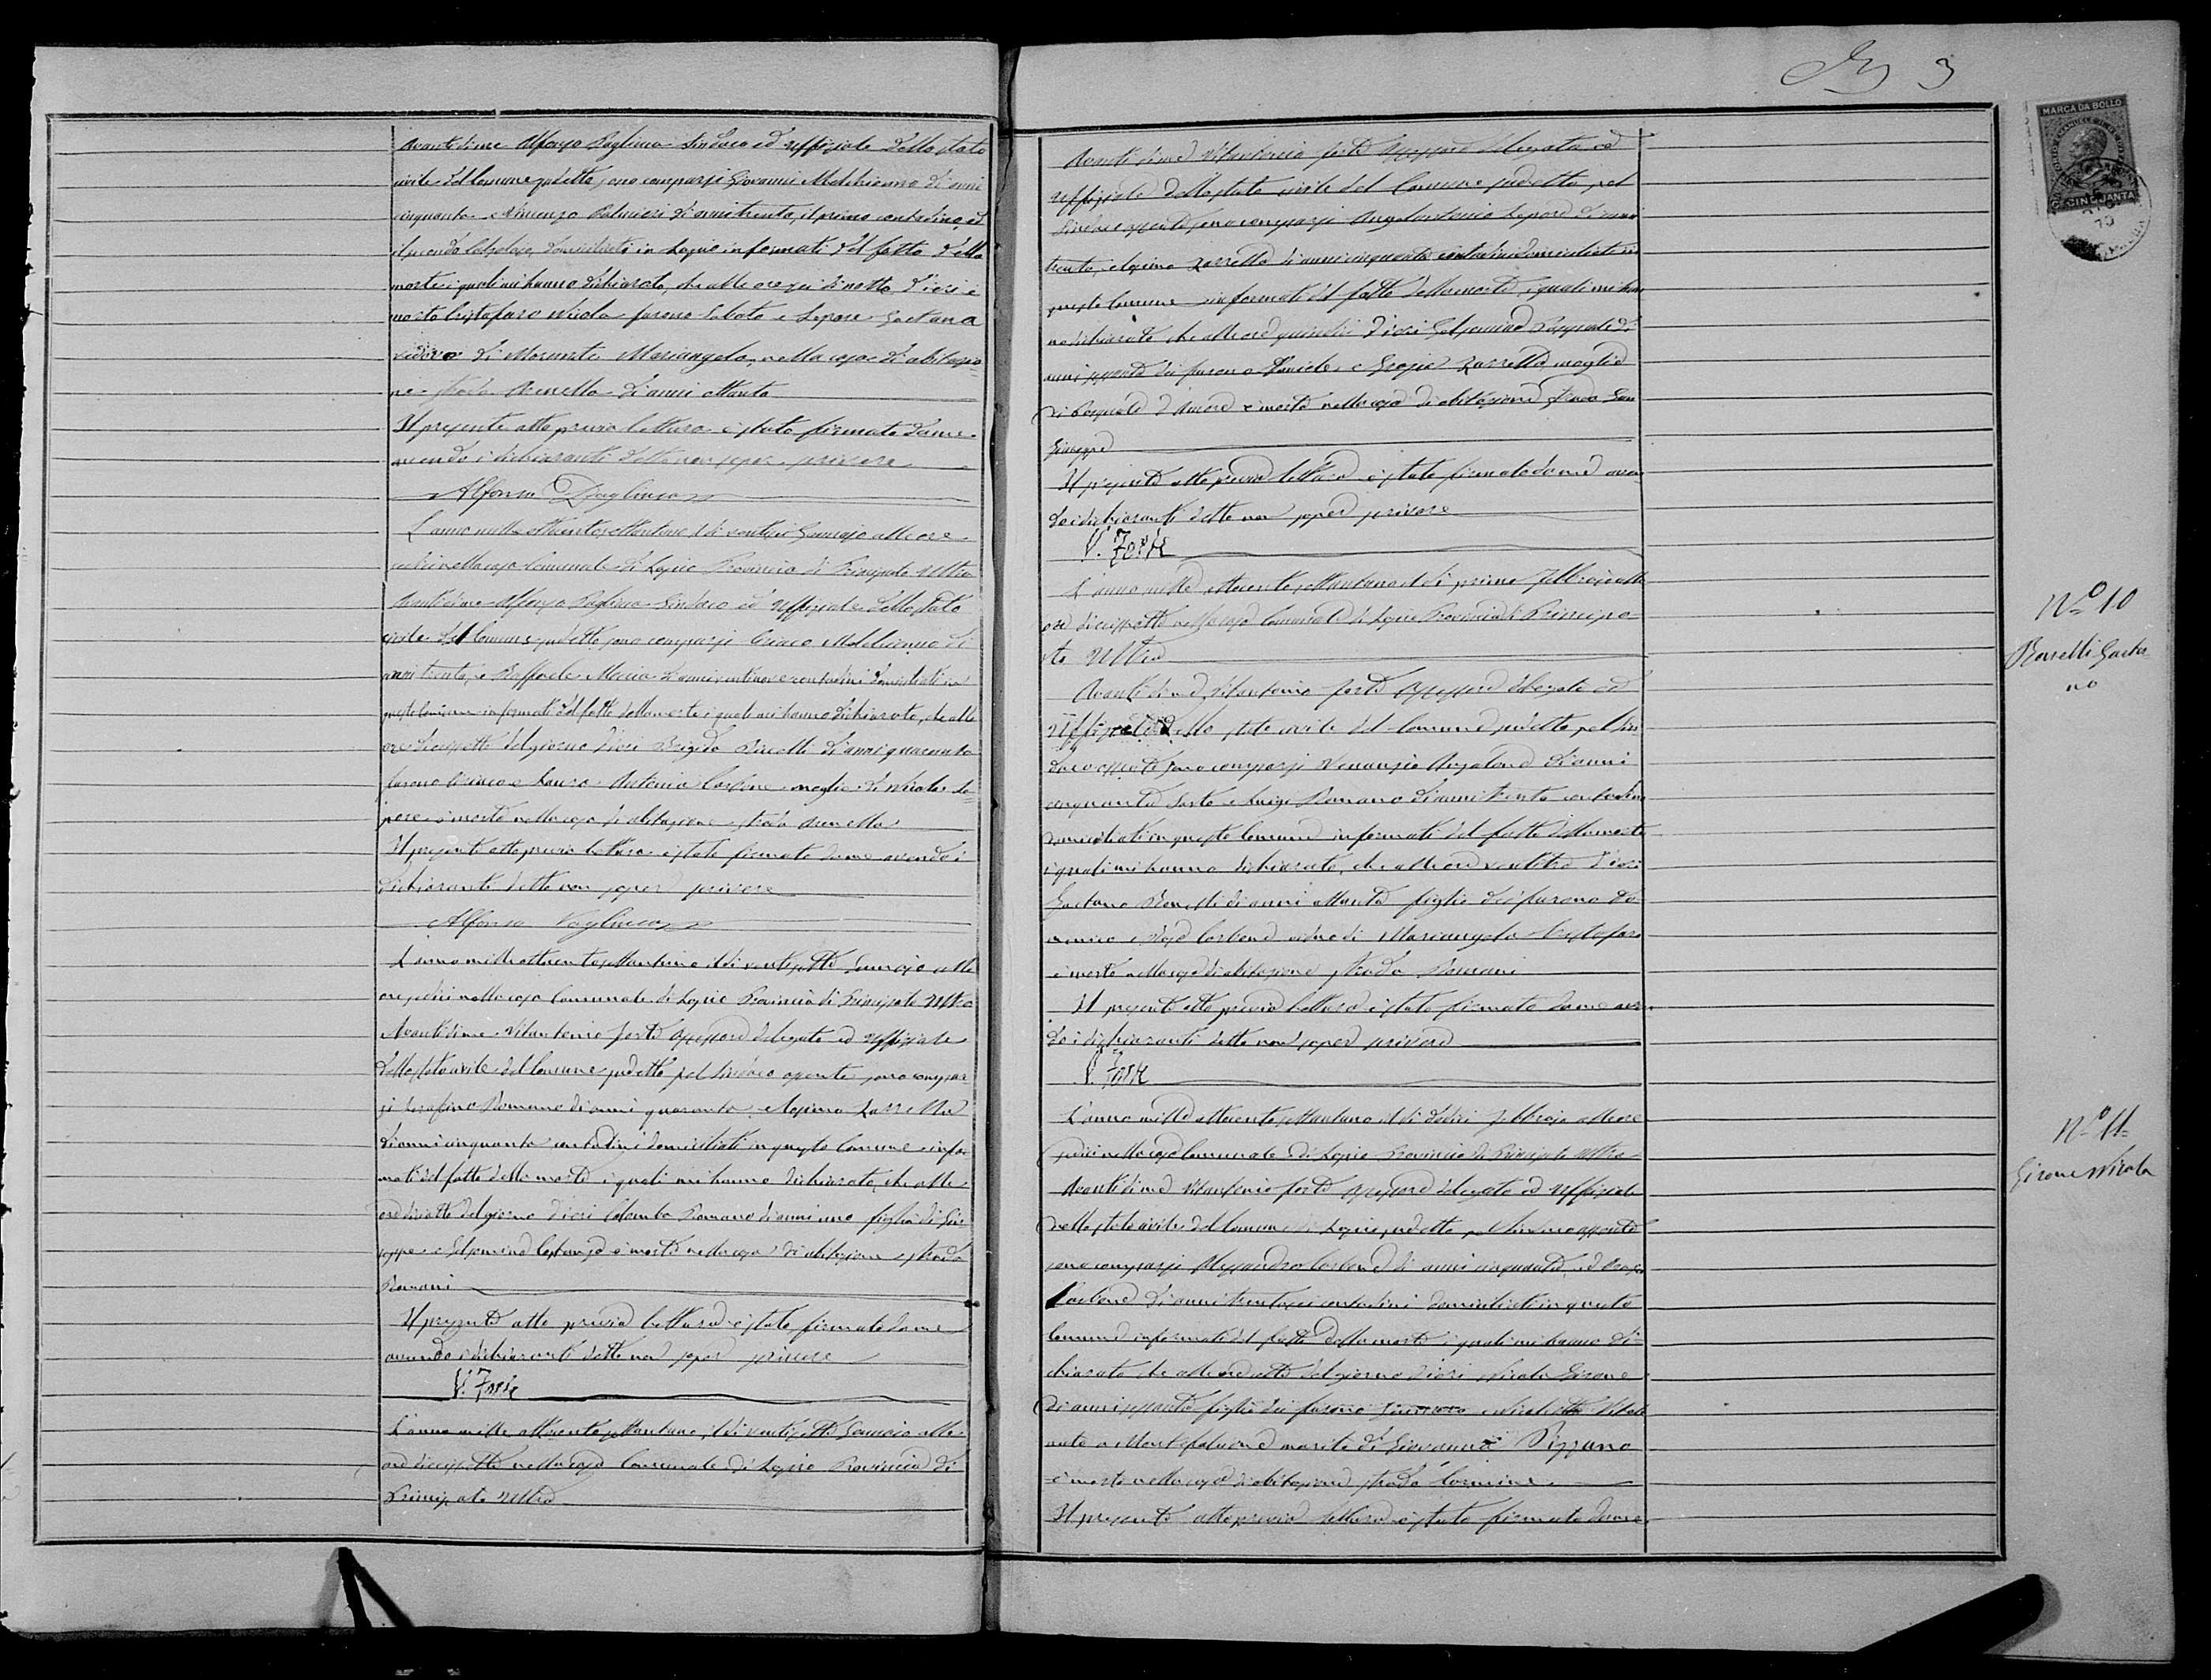 Avanti di me Alfonso Pagliuca Sindaco ed Uffiziale dello stato
civile del Comune sudetto, sono comparsi Giovanni Melchionno di anni
cinquanta e Vincenzo Palmieri di anni trenta, il primo contadino, ed
il secondo Calzolajo, domiciliati in Lapio informati del fatto della
morte i quali mi hanno dichiarato, che alle ore sei di notte d'ieri è
morto Cristofaro Nicola furono Sabato e Lepore Gaetana
vedovo di Morante Mariangela, nella casa di abitazio=
ne strada Arenella di anni ottanta
Il presente atto previa lettura è stato firmato da me
avendo i dichiaranti detto non saper scrivere
Alfonso Pagliuca
L'anno mille ottocento settantuno il dì ventisei Gennajo alle ore
sedici nella casa Comunale di Lapio Provincia di Principato Ultra
Avanti di me Alfonso Pagliuca Sindaco ed Uffiziale dello Stato
civile del Comune sudetto sono comparsi Ciriaco Melchionno di
anni trenta, e Raffaele Meccia di anni ventinove contadini domiciliati in
questo Comune informati del fatto della morte i quali mi hanno dichiarato, che alle
ore diecissette del giorno d'ieri Brigida di anni quaranta
furono Ciriaco e Laura Antonia Carbone moglie di Nicola Le=
pore è morta nella casa di abitazione strada Arenella
Il presente atto previa lettura è stato firmato da me avendo i
dichiaranti detto non saper scrivere
Alfonso Pagliuca
L'anno mille ottocento settantuno il dì ventisette Gennajo alle
ore sedici nella casa Comunale di Lapio Provincia di Principato Ultra
Avanti di me Vitantonio Forte Assessore delegato ed Uffiziale
dello stato civile del Comune sudetto pel Sindaco assente sono compar
si Serafino Romano di anni quaranta, e Zarrella
di anni cinquanta contadini domiciliati in questo Comune infor
mati del fatto della morte i quali mi hanno dichiarato, che alle
ore diciotto del giorno d'ieri Colomba Romano di anni uno figlia di Giu
seppe e Gelsomina è morta nella casa di abitazione strada
Romani
Il presente atto previa lettura è stato firmato da me
avendo i dichiaranti detto non saper scrivere
V. Forte
L'anno mille ottocento settantuno, il dì ventisette Gennajo alle
ore diecissette nella casa Comunale di Lapio Provincia di
Principato Ultra
3
MARCA DA BOLLO
C. CINQUANTA
Avanti di me Vitantonio Forte Assessore delegato ed
Uffiziale dello stato civile del Comune sudetto, pel
Sindaco assente, sono comparsi Angelantonio Lepore di anni
trenta, e Zarrella di anni cinquanta contadini domiciliati in
questo Comune informati del fatto della morte, i quali mi han
no dichiarato che alle ore quindici d'ieri Gelsomina di
anni sessanta di furono Daniele e Grazia Zarrella, moglie
di Pasquale d'Amore è morta nella casa di abitazione strada San
Giuseppe
Il presente atto previa lettura è stato firmato da me aven
do i dichiaranti detto non saper scrivere
V. Forte
L'anno mille ottocento settantuno il dì primo Febbrajo alle
ore diecissette nella casa Comunale di Lapio Provincia di Principa
to Ultra
Avanti di me Vitantonio Forte Assessore delegato ed
Uffiziale dello stato civile del Comune sudetto, pel Sin
daco assente sono comparsi Venanzio di anni
cinquanta Sarto e Luigi Romano di anni trenta contadino
domiciliati in questo Comune informati del fatto della morte
i quali mi hanno dichiarato, che alle ore ventitre d'ieri
Gaetano di anni ottanta figlio dei furono Do
menico e Carbone vedovo di Mariangela Cristofaro
è morto nella casa di abitazione strada Romani
Il presente atto previa lettura è stato firmato da me aven
do i dichiaranti detto non saper scrivere
V. Forte
L'anno mille ottocento settantuno il dì dodici Febbrajo alle ore
sedici nella casa Comunale di Lapio Provincia di Principato Ultra
Avanti di me Vitantonio Forte Assessore delegato ed Uffiziale
dello stato civile del Comune di Lapio sudetto pel Sindaco assente
sono comparsi Alessandro Carbone di anni cinquanta, ed
Carbone di anni trentasei contadini domiciliati in questo
Comune informati del fatto della morte i quali mi hanno di=
chiarato che alle ore otto del giorno d'ieri Nicola Girone
di anni sessanta figlio dei furono e Nicoletta Vitale
nato a Montefalcione marito di Giovanna Pizzano
è morto nella casa di abitazione strada
Il presente atto previa lettura è stato firmato da me
No 10
Gaeta
no
No 11
Girone Nicola